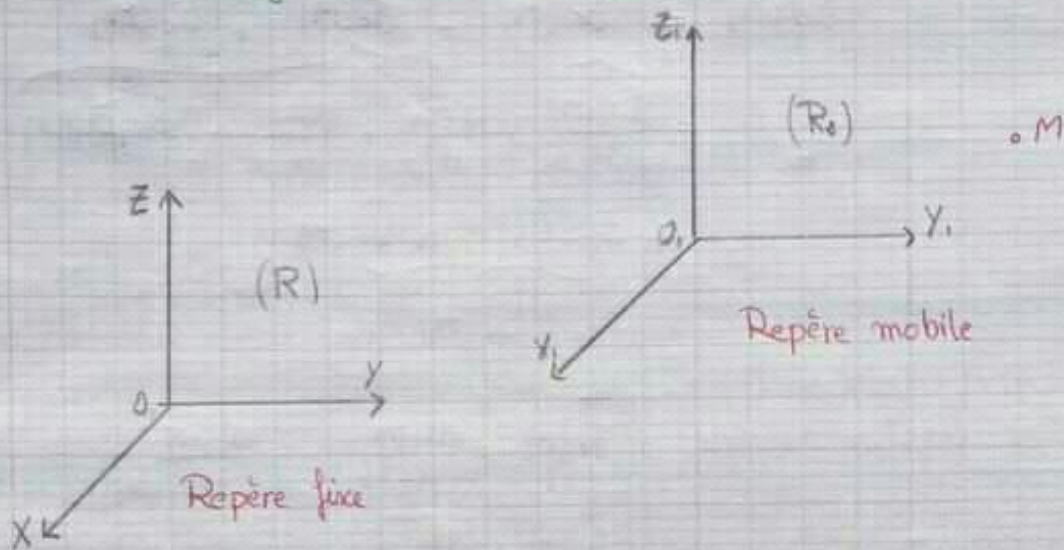 Z₁
(R₁)
M
Z
O₁
Y₁
(R)
Repère mobile
Y₁
O
Y
Repère fixe
X